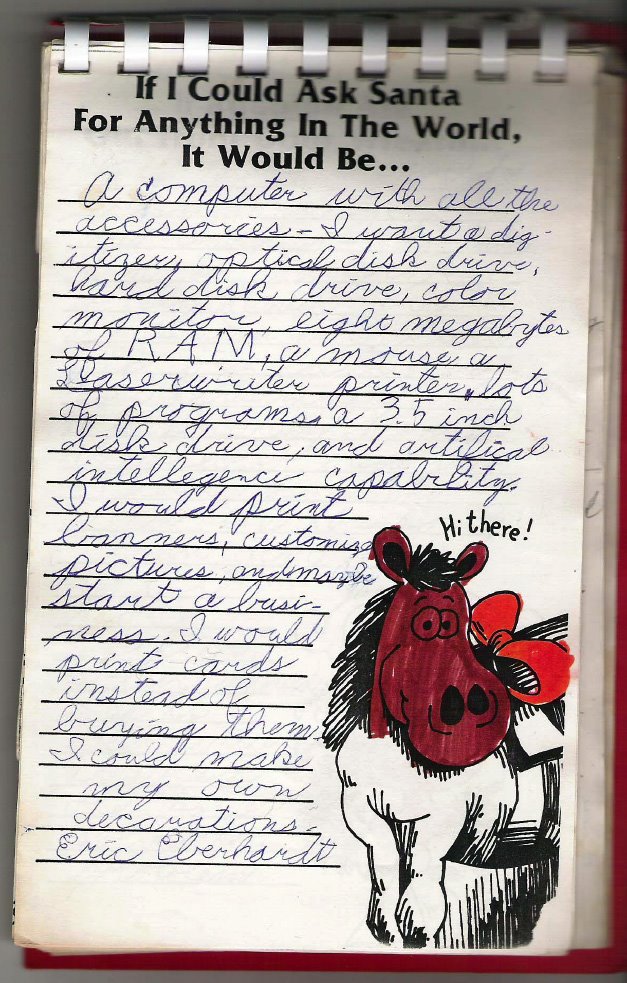 If I Could Ask Santa
For Anything In The World,
It Would Be...
A computer with all the
accessories - I want a dig-
itizer, optical disk drive,
hard disk drive, color
monitor, eight megabytes
of RAM, a mouse, a
Laserwriter printer, lots
of programs, a 3.5 inch
disk drive, and artifical
intellegence capability.
I would print
banners, customize
pictures, and maybe
start a busi-
ness. I would
print cards
instead of
buying them.
I could make
my own
decarations.
Eric Eberhardt
Hi there!